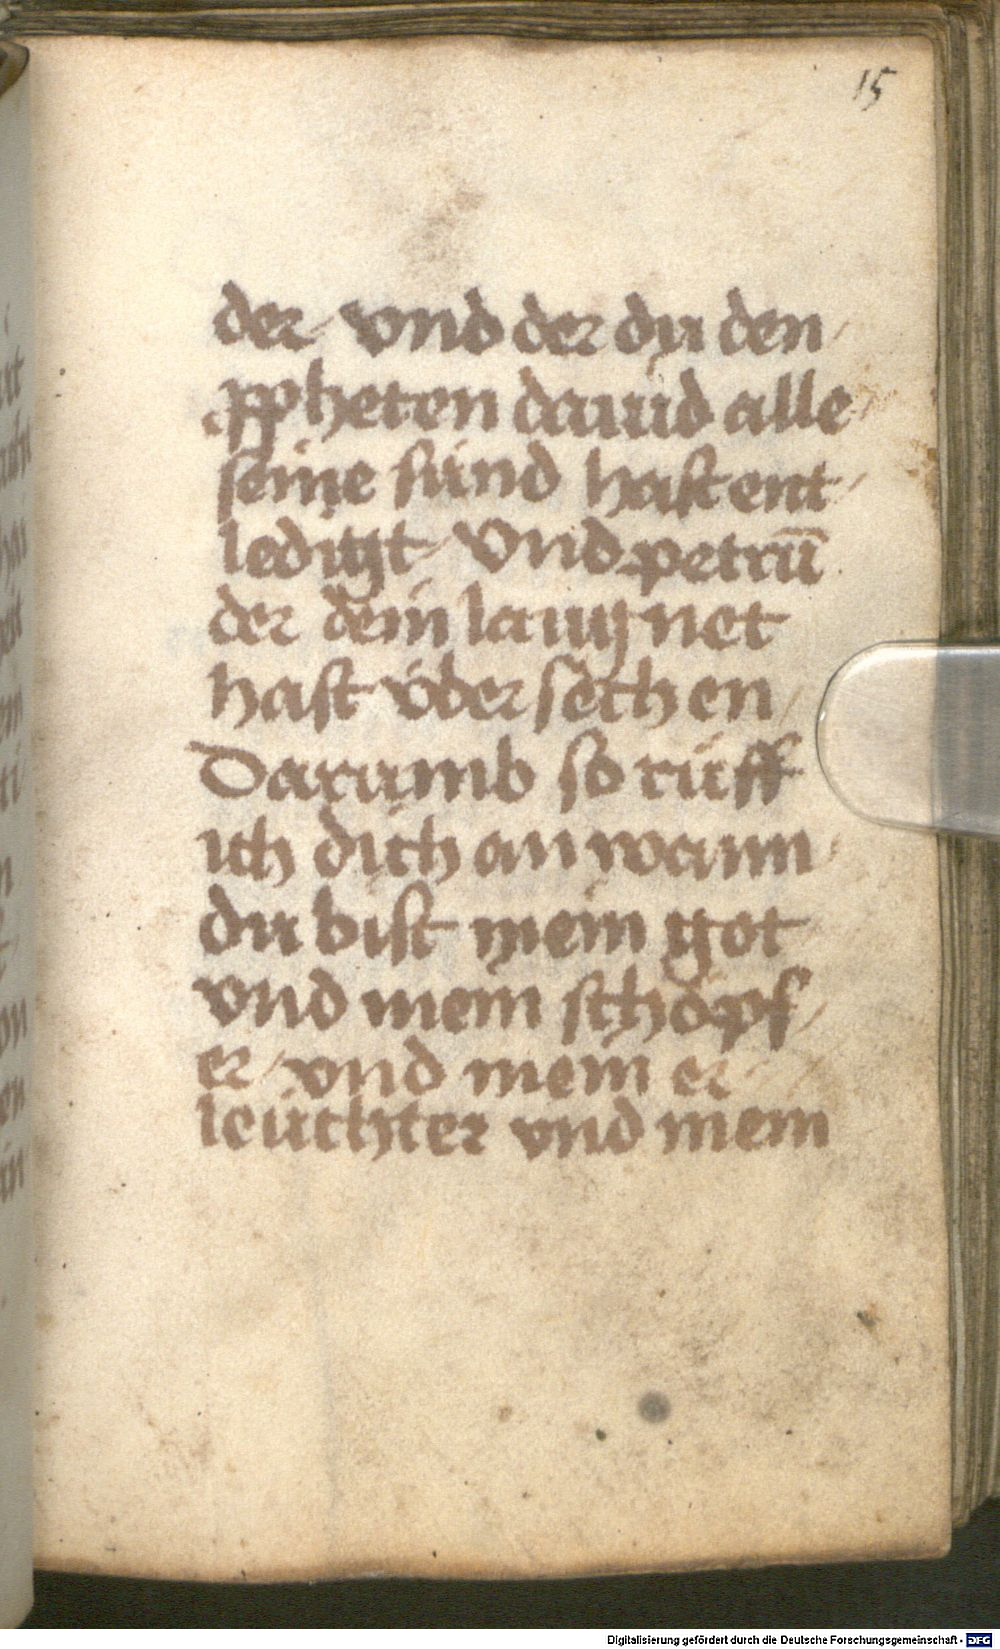 15
der vnd der du den
ꝓpheten dauid alle
seine sünd hast ent
ledigt Vnd petrū
der dein laugnet
hast v́ber sechen
Darumb so rüff
ich dich an wann
du bist mein got
vnd mein schöpf
er vnd mein er
leüchter vnd mein
Digitalisierung gefördert durch die Deutsche Forschungsgemeinschaft - DFG